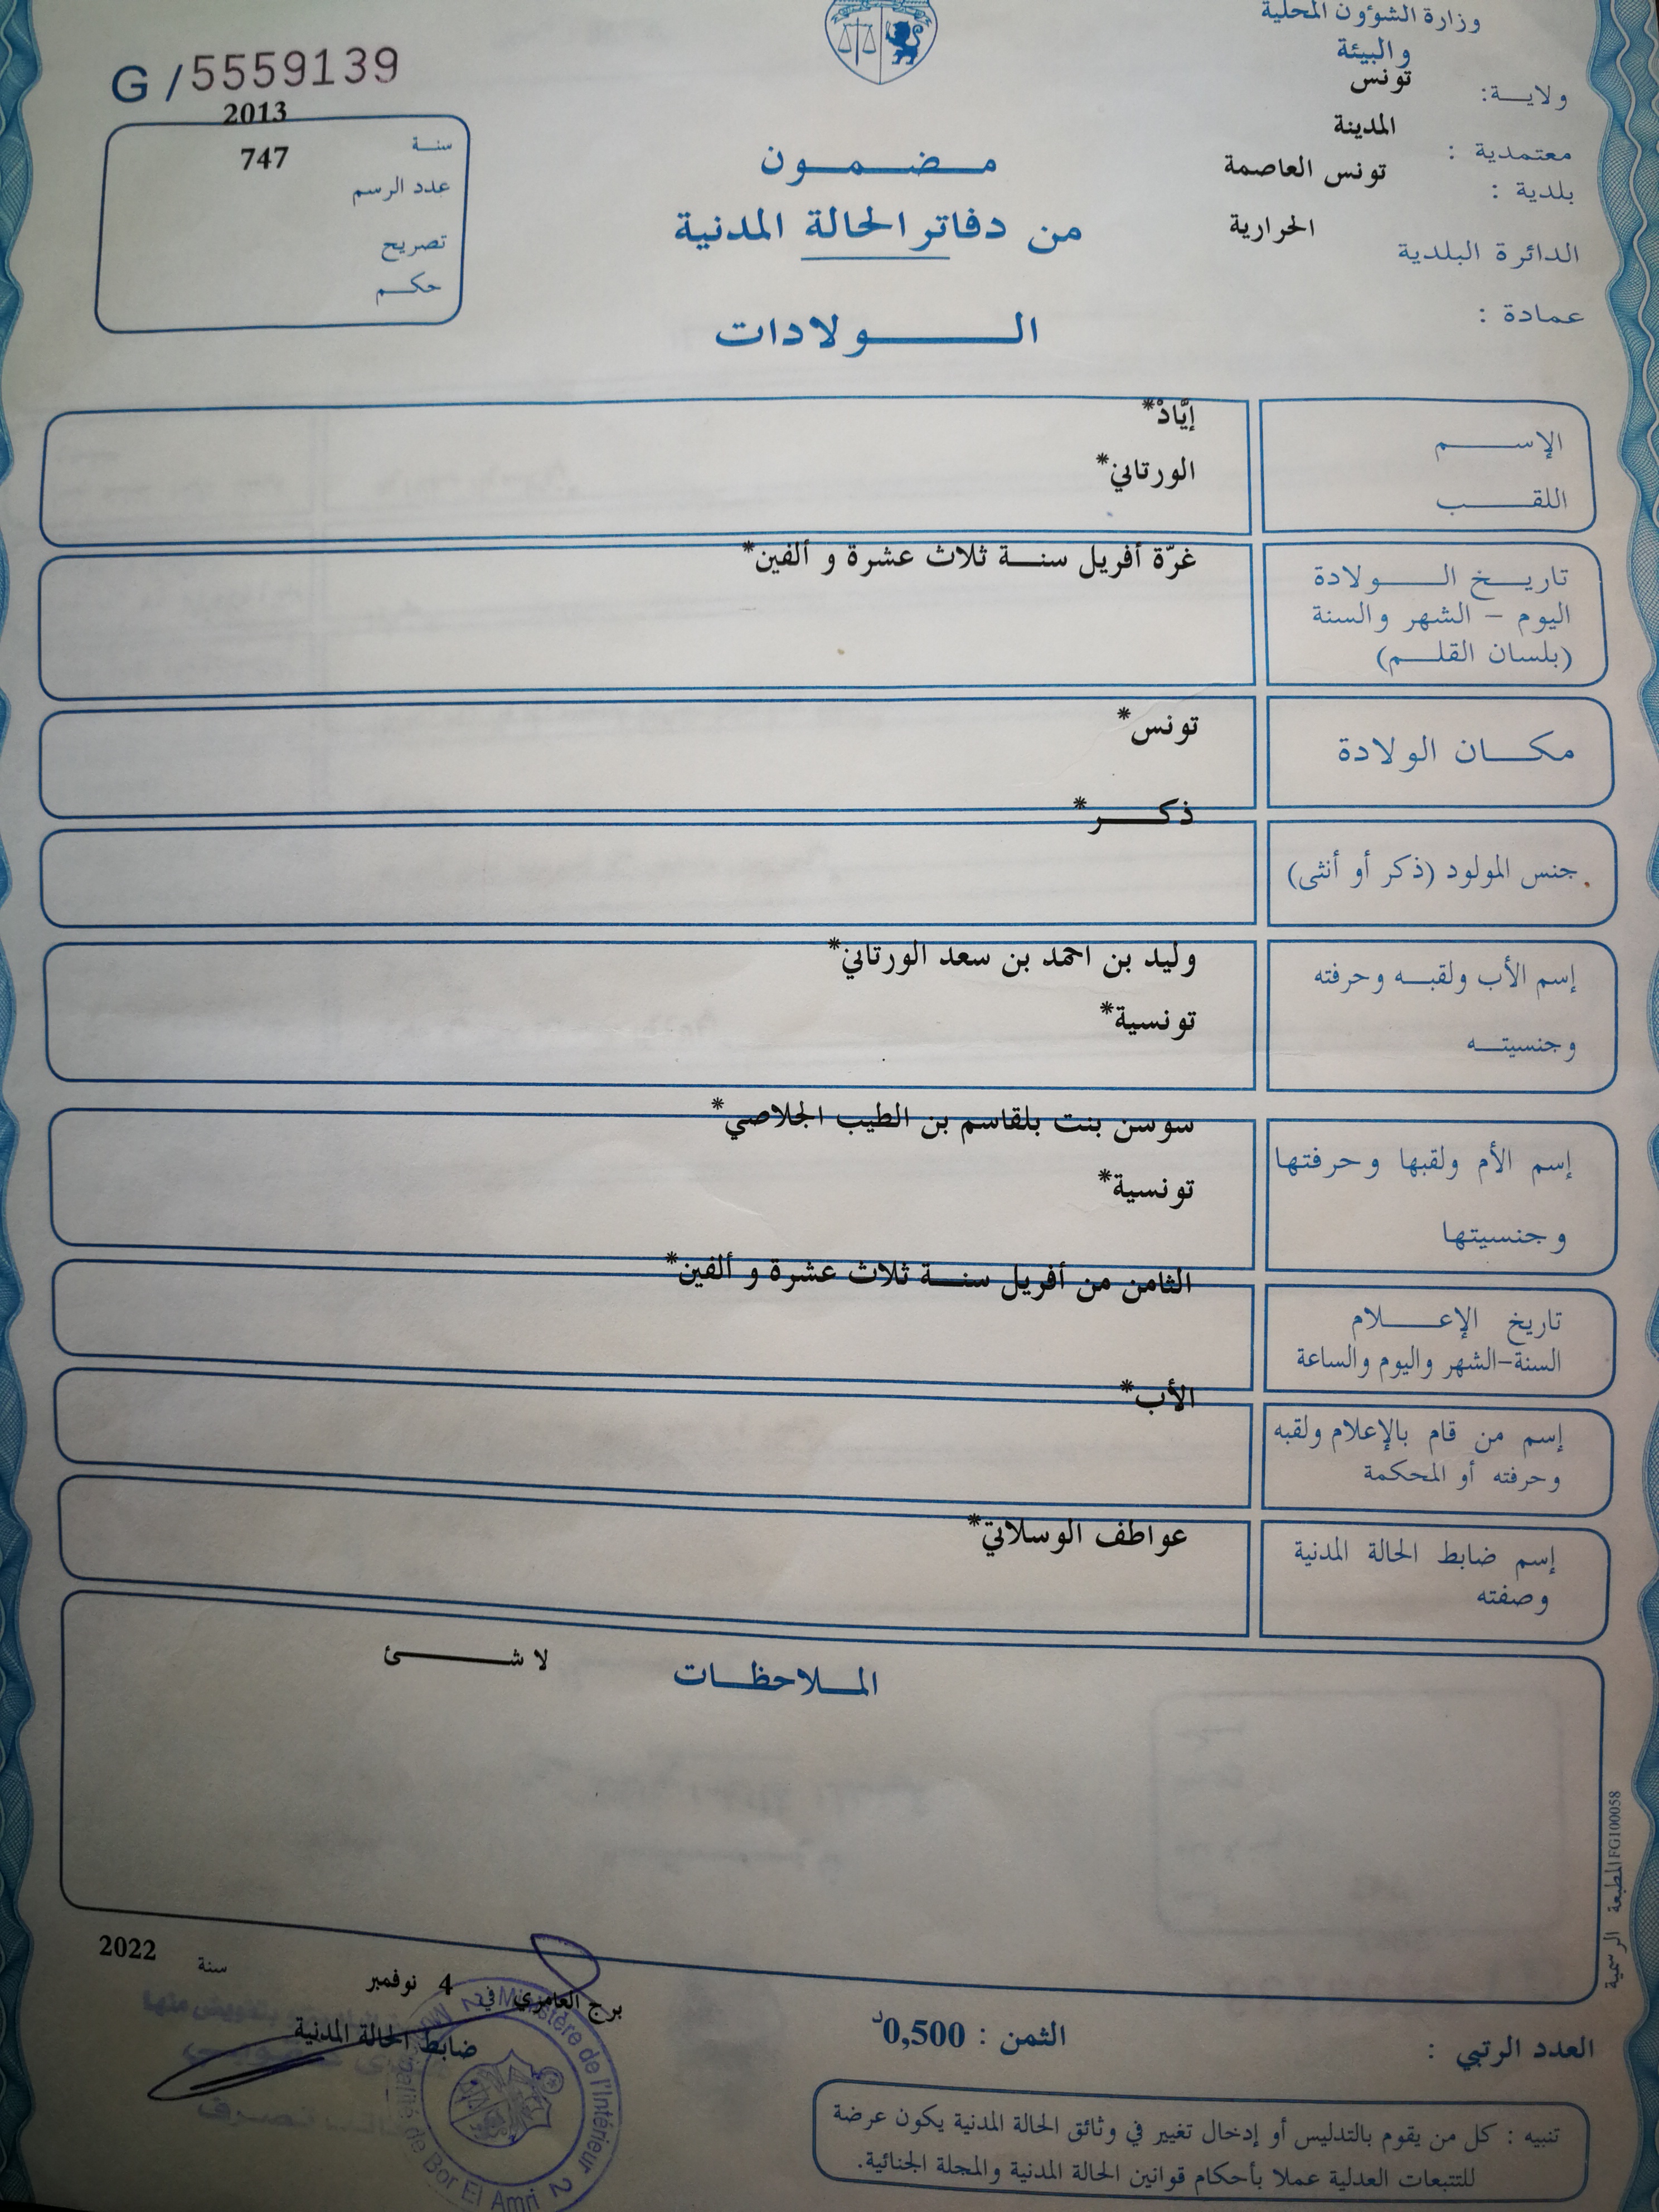 وزارة الشؤون المحلية
والبيئة
ولايـــة: تونس
معتمدية : المدينة
بلدية : تونس العاصمة
الدائرة البلدية الحرارية
عمادة :
G / 5559139
سنــة 2013
عدد الرسم 747
تصريح
حكــم
مــضــمــون
من دفاتر الحالة المدنية
الــــولادات
الإســـــم إيَّادْ*
اللقـــــب الورتاني*
تاريــخ الــــولادة غرّة أفريل سنــة ثلاث عشرة و ألفين*
اليوم – الشهر والسنة
(بلسان القلــم)
مكـــان الولادة تونس*
جنس المولود (ذكر أو أنثى) ذكـــر*
إسم الأب ولقبــه وحرفته وليد بن احمد بن سعد الورتاني*
وجنسيتــه تونسية*
إسم الأم ولقبها وحرفتها سوسن بنت بلقاسم بن الطيب الجلاصي*
وجنسيتها تونسية*
تاريخ الإعــــلام الثامن من أفريل سنــة ثلاث عشرة و ألفين*
السنة–الشهر واليوم والساعة
إسم من قام بالإعلام ولقبه الأب*
وحرفته أو المحكمة
إسم ضابط الحالة المدنية عواطف الوسلاتي*
وصفته
المــلاحظــات لا شـــــئ
المطبعة الرسمية FG100058
برج العامري في 4 نوفمبر سنة 2022
ضابط الحالة المدنية
Ministère de l'Intérieur
de Bor El Amri
العدد الرتبي :
الثمن : 0,500د
تنبيه : كل من يقوم بالتدليس أو إدخال تغيير في وثائق الحالة المدنية يكون عرضة
للتتبعات العدلية عملا بأحكام قوانين الحالة المدنية والمجلة الجنائية.